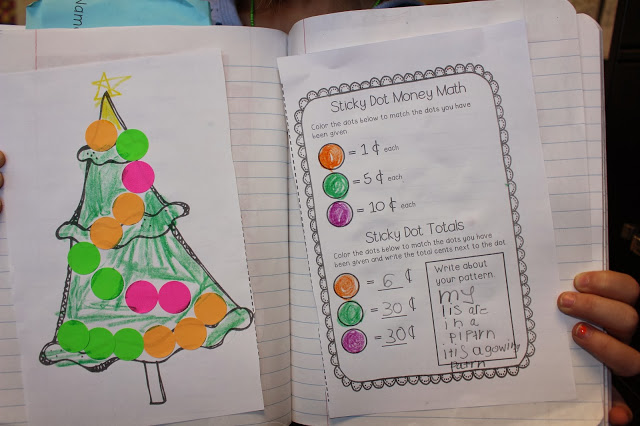 Name
Sticky Dot Money Math
Color the dots below to match the dots you have
been given.
= 1 ¢ each
= 5 ¢ each
= 10 ¢ each
Sticky Dot Totals
Color the dots below to match the dots you have
been given and write the total cents next to the dot.
= 6 ¢
= 30 ¢
= 30 ¢
Write about
your pattern.
my
lis are
in a
pitarn
itisagowing
patrn